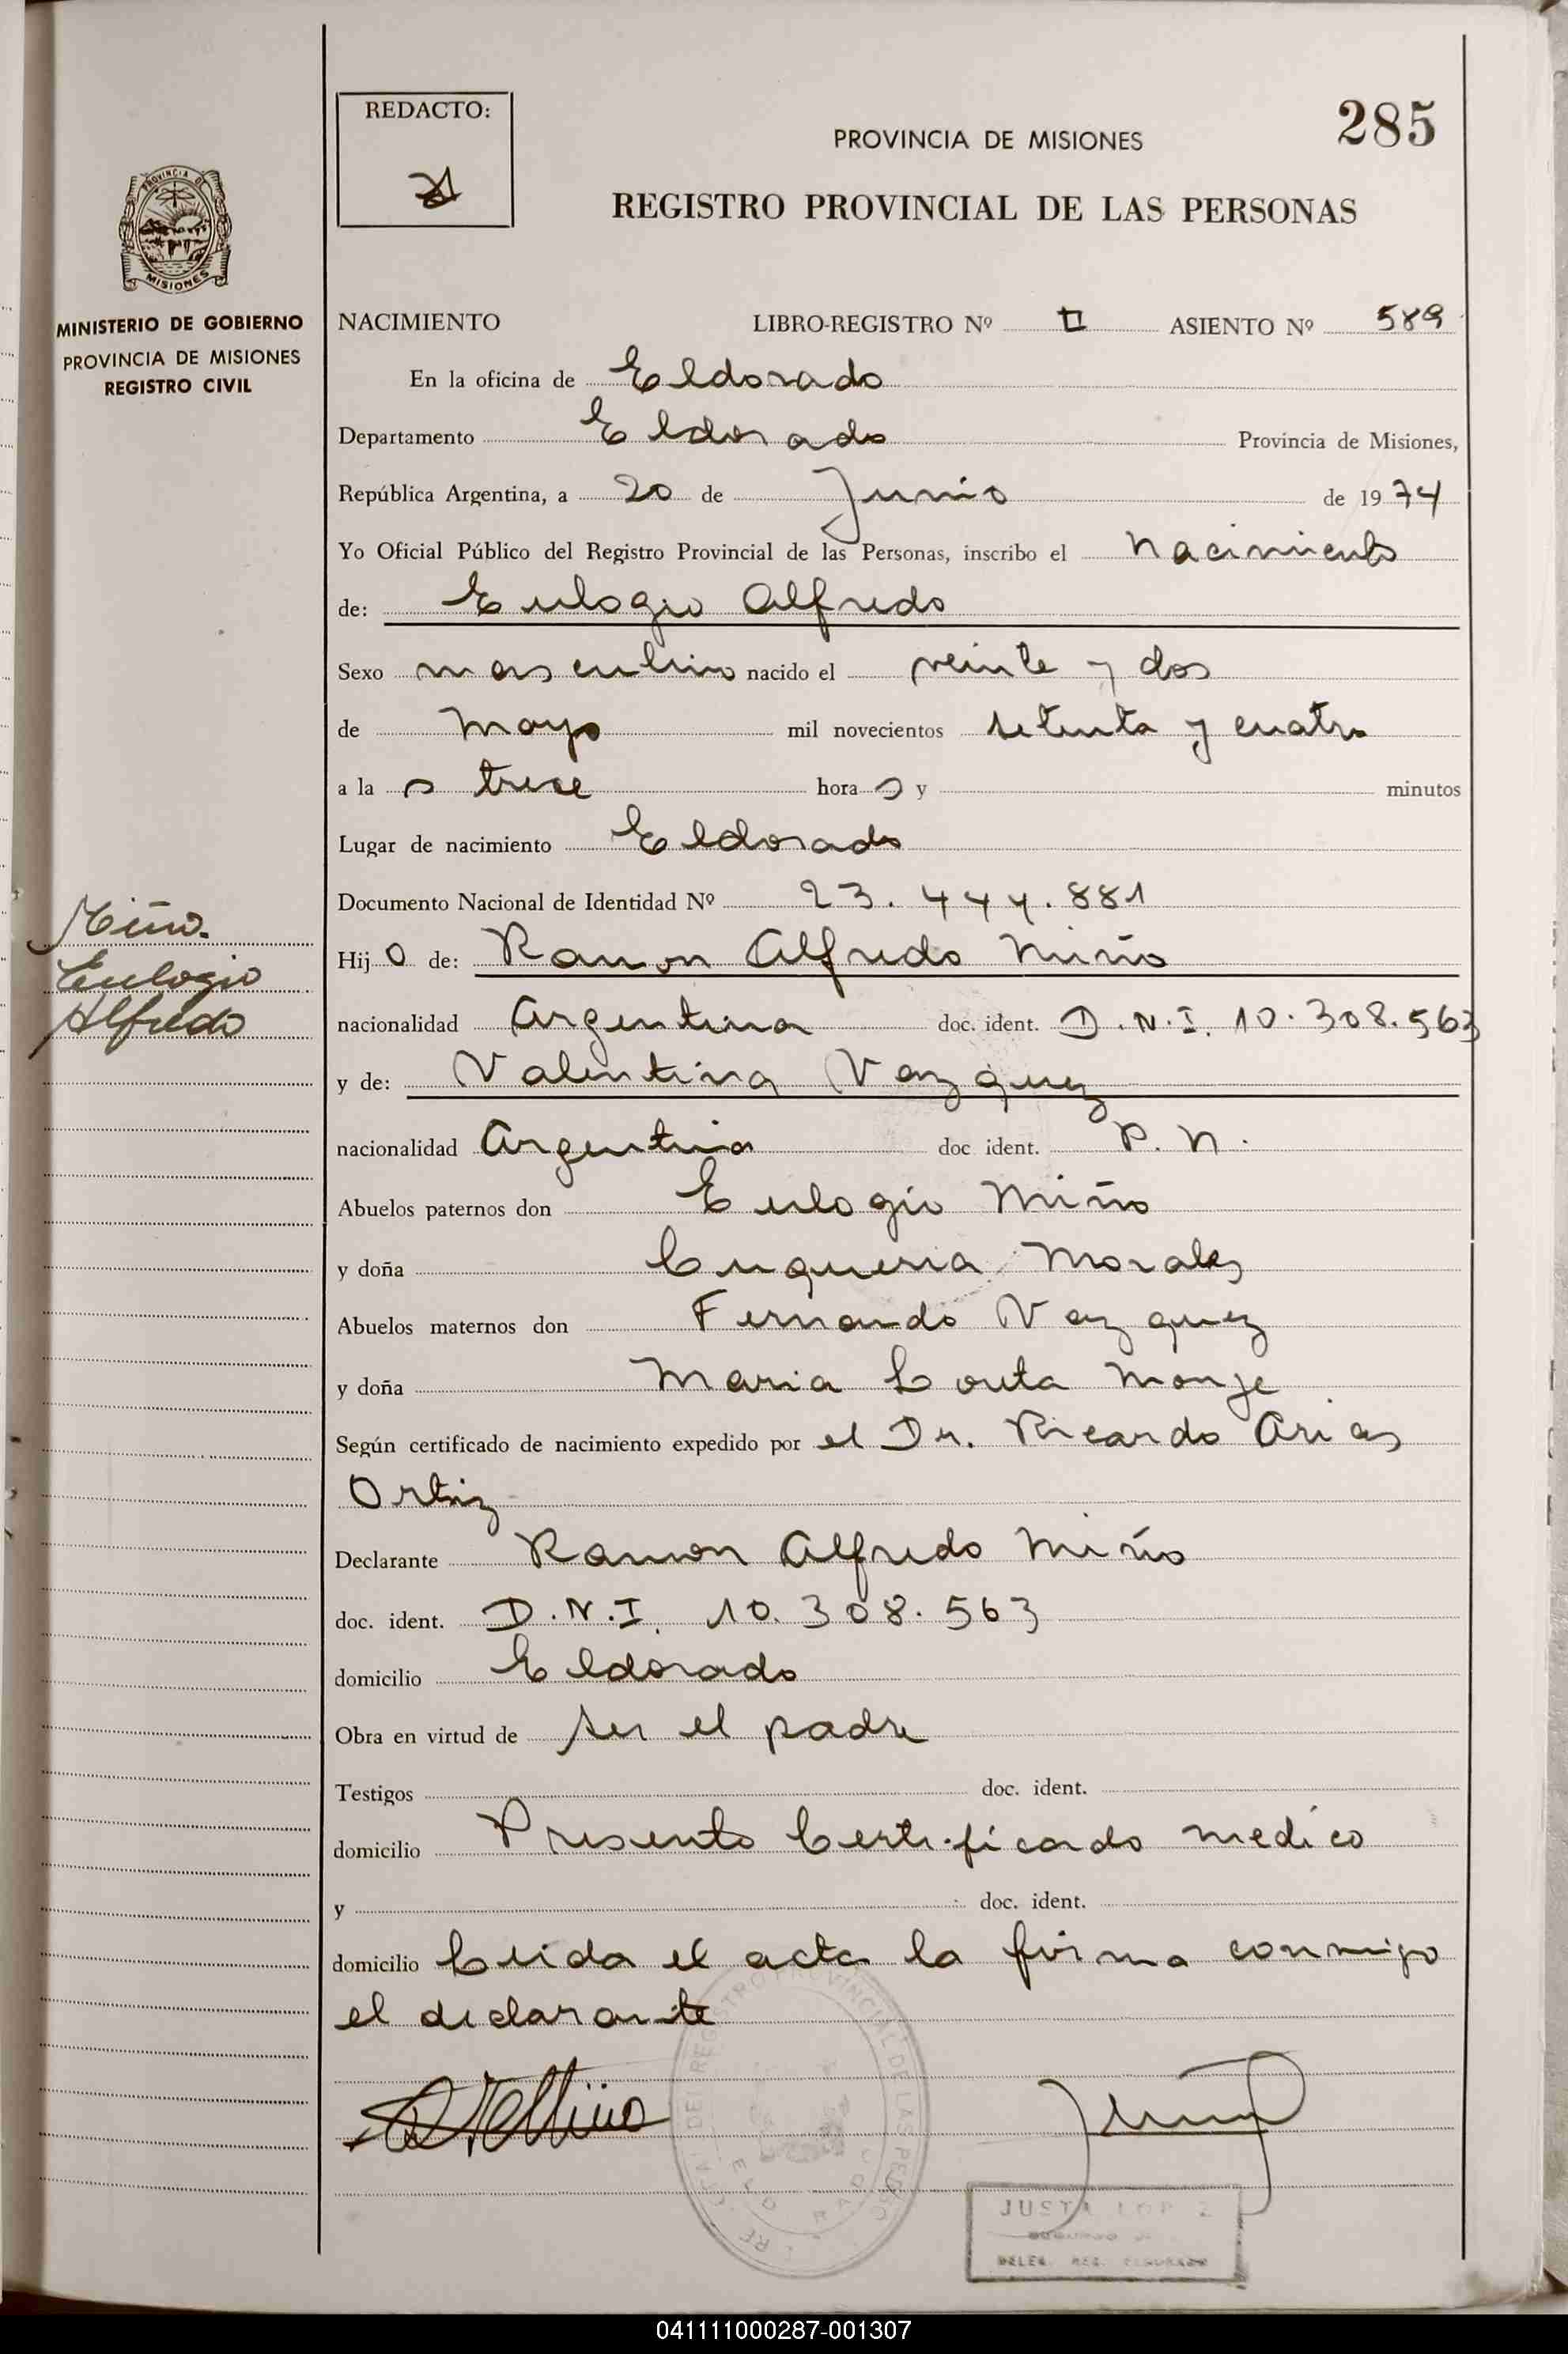 REDACTO:
285
PROVINCIA DE MISIONES
REGISTRO PROVINCIAL DE LAS PERSONAS
PROVINCIA DE
MISIONES
MINISTERIO DE GOBIERNO
PROVINCIA DE MISIONES
REGISTRO CIVIL
NACIMIENTO LIBRO-REGISTRO Nº II ASIENTO Nº 589
En la oficina de Eldorado
Departamento Eldorado Provincia de Misiones,
República Argentina, a 20 de Junio de 1974
Yo Oficial Público del Registro Provincial de las Personas, inscribo el nacimiento
de: Eulogio Alfredo
Sexo masculino nacido el veinte y dos
de mayo mil novecientos setenta y cuatro
a las trece horas y minutos
Lugar de nacimiento Eldorado
Documento Nacional de Identidad Nº 23.444.881
Miño.
Eulogio
Alfredo
Hijo de: Ramon Alfredo Miño
nacionalidad Argentina doc. ident. D.N.I. 10.308.563
y de: Valentina Vazquez
nacionalidad Argentina doc ident. P.N.
Abuelos paternos don Eulogio Miño
y doña Morales
Abuelos maternos don Fernando Vazquez
y doña Maria Monje
Según certificado de nacimiento expedido por el Dr. Ricardo Arias
Ortiz
Declarante Ramon Alfredo Miño
doc. ident. D.N.I. 10.308.563
domicilio Eldorado
Obra en virtud de ser el padre
Testigos doc. ident.
domicilio Presento Certificado medico
y doc. ident.
domicilio Leida el acta la firma conmigo
el declarante
REGISTRO PROVINCIAL DE LAS PERSONAS
JUSTA
041111000287-001307